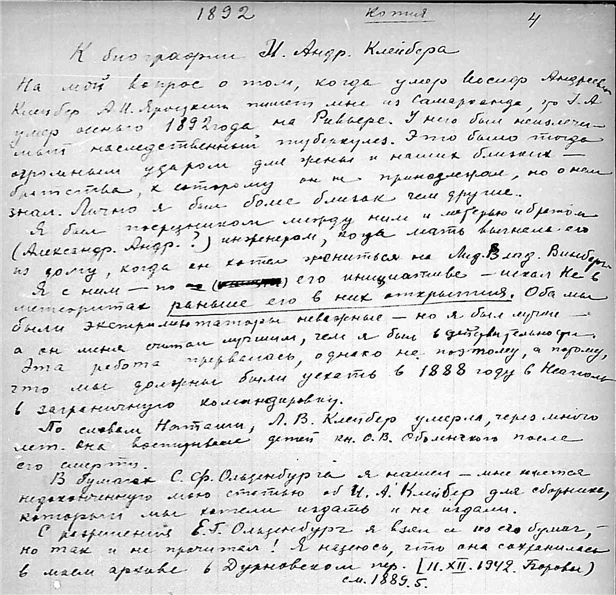 1892 Копия 4
К биографии И. Андр. Клейбера
На мой вопрос о том, когда умер Иосиф Андреевич
Клейбер А.И. Яроцкий пишет мне из Самарканда, что I.А.
умер осенью 1892 года на Ривьере. У него был неизлечи-
мый наследственный туберкулез. Это было тогда
огромным ударом для жены и наших близких —
братства, к которому он не принадлежал, но о нем
знал. Лично я был более близок чем другие.
Я был посредником между ним и матерью и братом
(Александр. Андр.?) инженером, когда мать выгнала его
из дому, когда он хотел жениться на Лид. Влад. Винберг.
Я с ним — по его инициативе — искал He в
метеоритах раньше его в них открытия. Оба мы
были экспериментаторы неважные — но я был лучше —
а он меня считал лучшим, чем я был в действительности.
Эта работа прервалась, однако не поэтому, а потому,
что мы должны были уехать в 1888 году в Неаполь
в заграничную командировку.
По словам Наташи, Л. В. Клейбер умерла, через много
лет. Она воспитывала детей кн. О.В. после
его смерти.
В бумагах С. Ф. Ольденбурга я нашел — мне кажется
недоконченную мою статью об И. А. Клейбер для сборника,
который мы хотели издать и не издали.
С разрешения Е.Г. Ольденбург я взял и из его бумаг, —
но так и не прочитал! Я надеюсь, что она сохранилась
в моем архиве в Дурновском пер. [11.XII.1942. Боровое]
см. 1889.5.